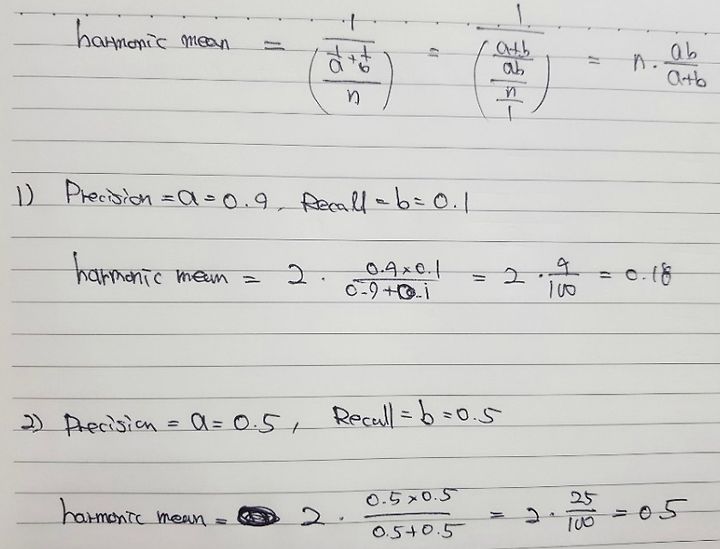 harmonic mean = 1 / ((1/a + 1/b) / n) = 1 / (((a+b)/ab) / (n/1)) = n · ab/(a+b)
1) Precision = a = 0.9, Recall = b = 0.1
harmonic mean = 2 · (0.9 × 0.1)/(0.9 + 0.1) = 2 · 9/100 = 0.18
2) Precision = a = 0.5, Recall = b = 0.5
harmonic mean = 2 · (0.5 × 0.5)/(0.5 + 0.5) = 2 · 25/100 = 0.5